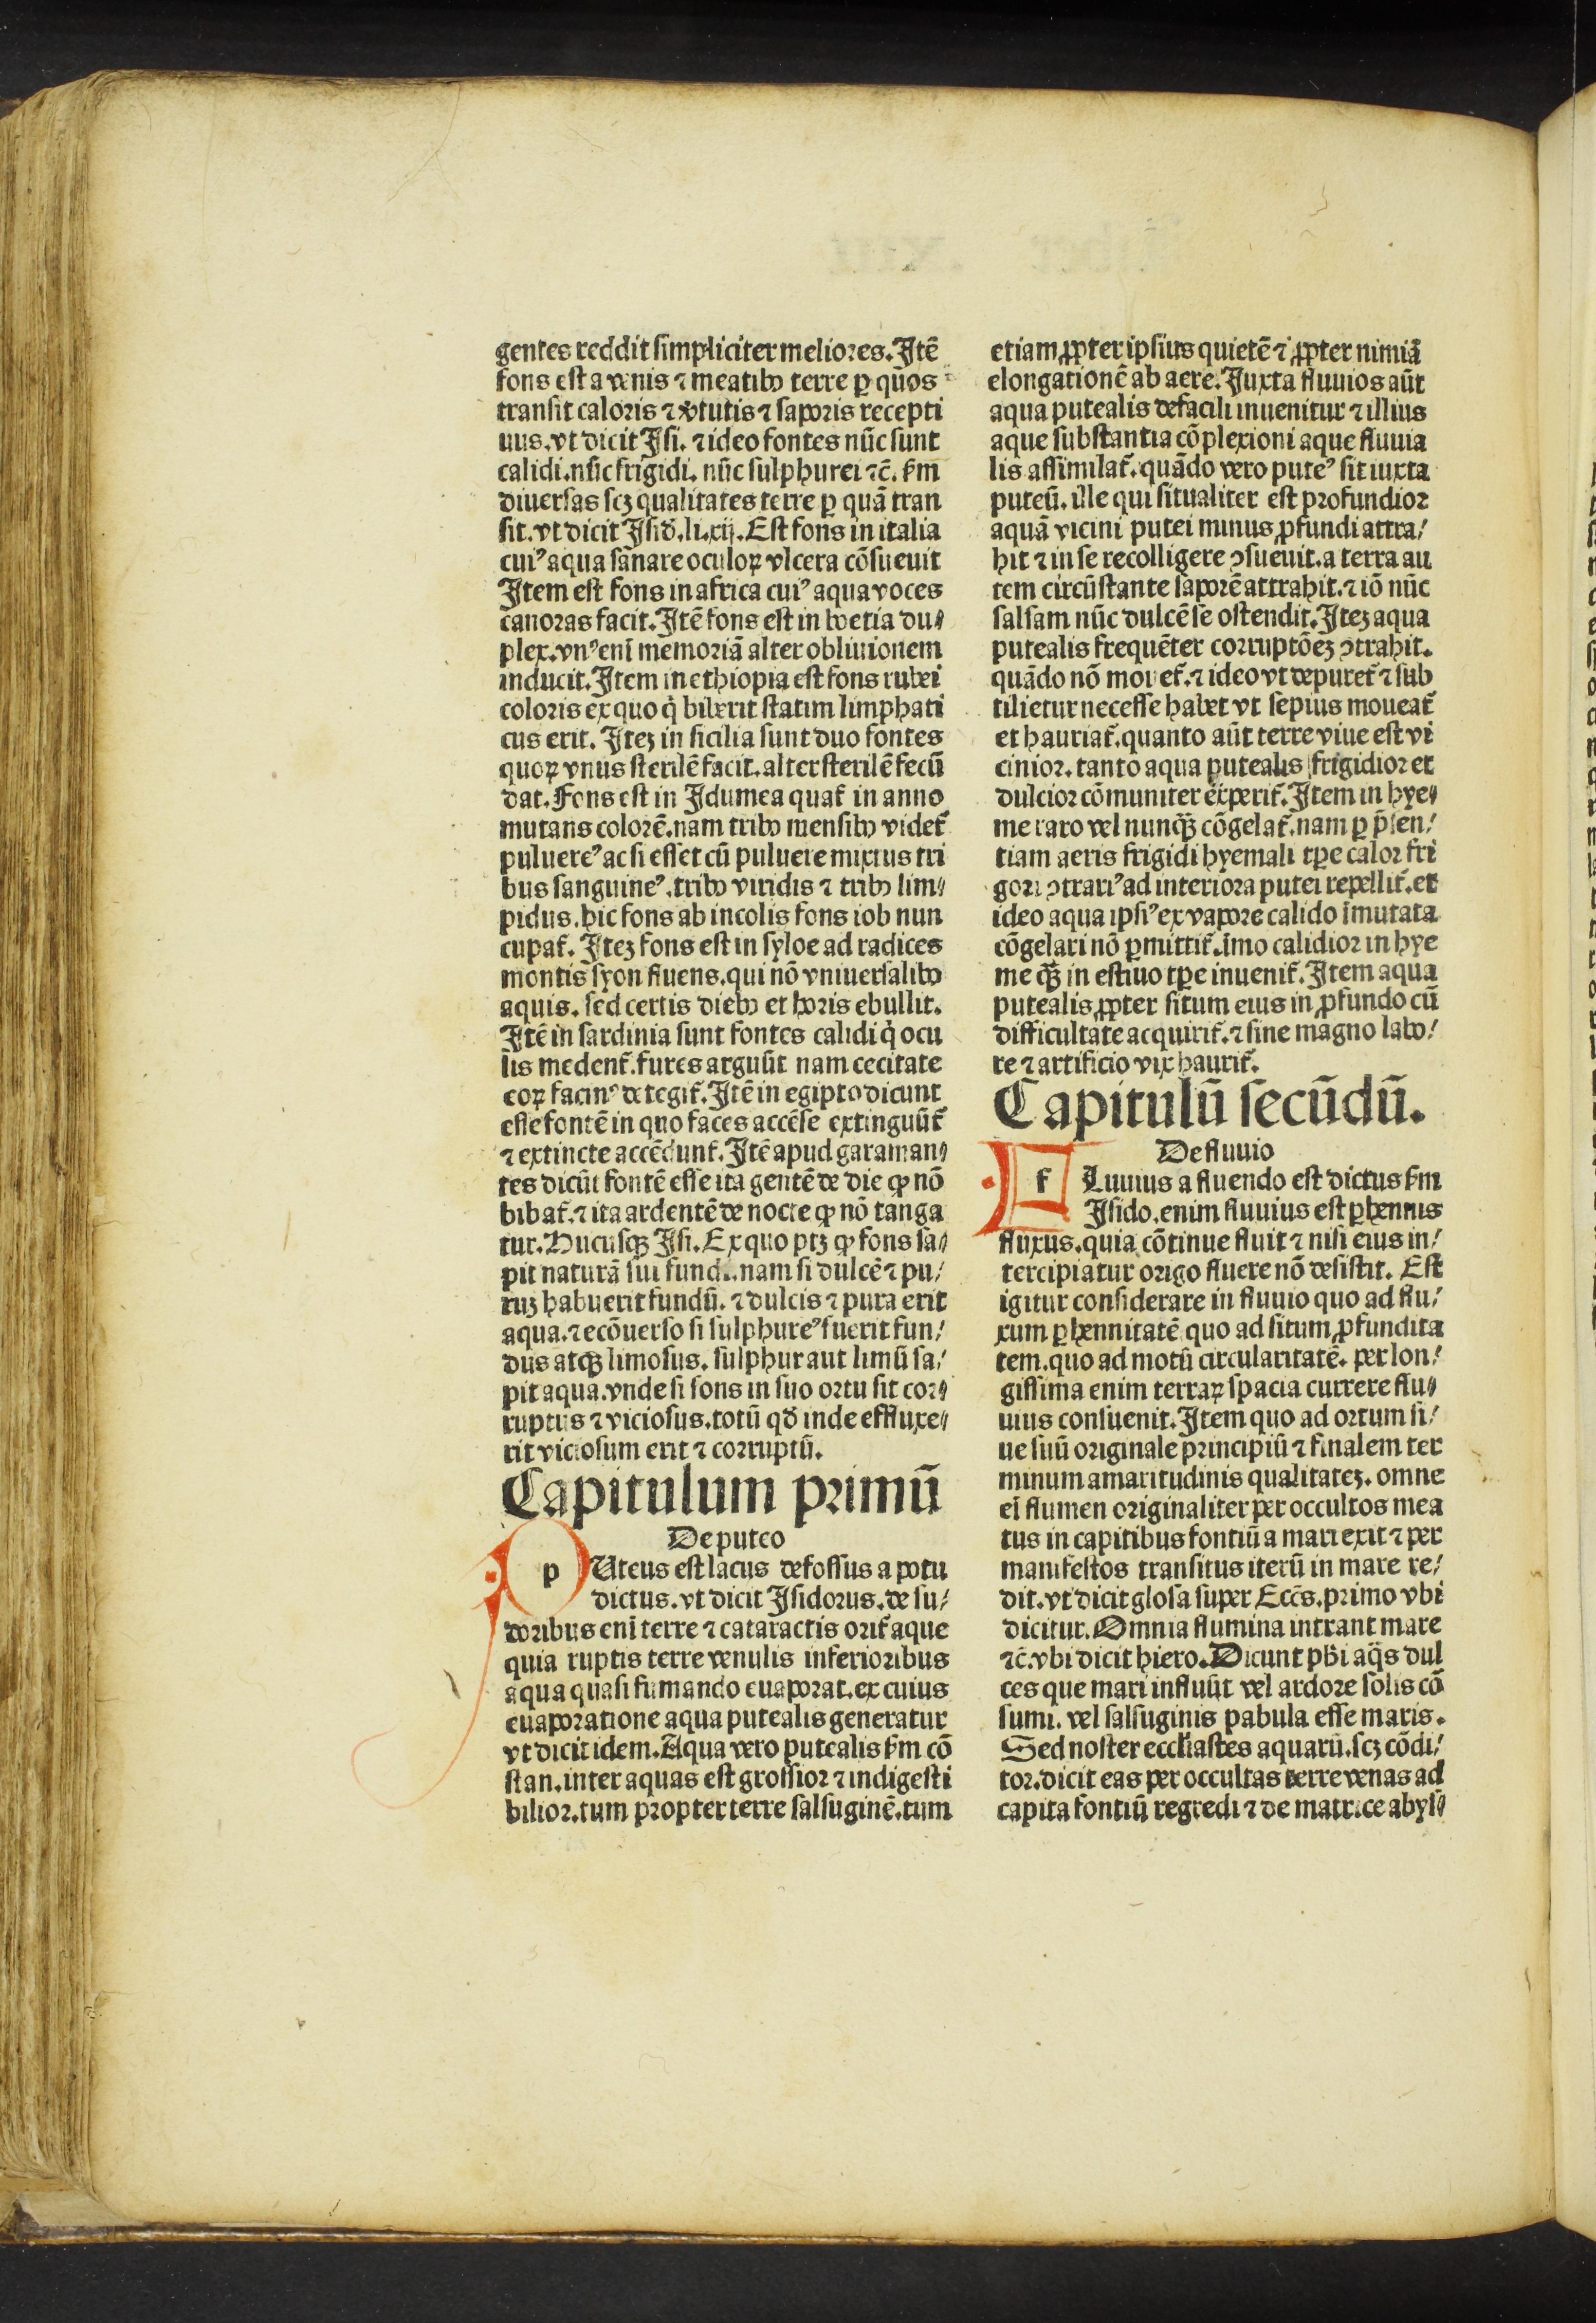 gentes reddit simpliciter meliores. Itē
fons est a venis ⁊ meatibꝰ terre ꝑ qūos
transit caloris ⁊ v̄tutis ⁊ saporis recepti
uus. vt dicit Isi. ⁊ ideo fontes nūc sunt
calidi. nūc frigidi. nūc sulphurei ⁊c̄. ẜm
diuersas scꝫ qualitates terre ꝑ quā tran
sit. vt dicit Isid̄. li. xij. Est fons in italia
cuiꝰ aqua sanare oculoꝝ vlcera cōsueuit
Item est fons in africa cuiꝰ aqua voces
canoras facit. Itē fons est in boetia du⸗
plex. vnꝰ eni memoriā alter obliuionem
inducit. Item in ethiopia est fons rubei
coloris ex quo q̇ biberit statim limphati
cus erit. Iteꝫ in sicilia sunt duo fontes
quoꝝ vnus sterilē facit. alter sterilē fecū
dat. Fons est in Idumea quat̄ in anno
mutans colorē. nam tribꝰ mensibꝰ videt̄
puluereꝰ ac si esset cū puluere mixtus tri
bus sanguineꝰ. tribꝰ viridis ⁊ tribꝰ lim⸗
pidus. hic fons ab incolis fons iob nun
cupat̄. Iteꝫ fons est in syloe ad radices
montis syon fluens. qui nō vniuersalibꝰ
aquis. sed certis diebꝰ et horis ebullit.
Itē in sardinia sunt fontes calidi q̇ ocu
lis medent̄. fures arguūt nam cecitate
eoꝝ facinꝰ detegit̄. Itē in egipto dicunt
esse fontē in quo faces accēse extinguūt̄
⁊ extincte accēdunt̄. Itē apud garaman⸗
tes dicūt fontē esse ita gentē de die ꝙ nō
bibat̄. ⁊ ita ardentē de nocte ꝙ nō tanga
tur. Hucusqꝫ Isi. Ex quo ptꝫ ꝙ fons sa⸗
pit naturā sui fundi. nam si dulcē ⁊ pu/
ruꝫ habuerit fundū. ⁊ dulcis ⁊ pura erit
aqua. ⁊ ecōuerso si sulphureꝰ fuerit fun/
dus atqꝫ limosus. sulphur aut limū sa/
pit aqua. vnde si fons in suo ortu sit cor⸗
ruptus ⁊ viciosus. totū qd̄ inde effluxe⸗
rit viciosum erit ⁊ corruptū.
Capitulum primū
De puteo
p Uteus est lacus defossus a potu
dictus. vt dicit Isidorus. de su/
doribus eni terre ⁊ cataractis orit̄ aque
quia ruptis terre venulis inferioribus
aqua quasi fumando euaporat. ex cuius
euaporatione aqua putealis generatur
vt dicit idem. Aqua vero putealis ẜm cō
stan. inter aquas est grossior ⁊ indigesti
bilior. tum propter terre salsuginē. tum
etiam ꝓpter ipsius quietē ⁊ ꝓpter nimiā
elongationē ab aere. Iuxta fluuios aūt
aqua putealis defacili inuenitur ⁊ illius
aque substantia cōplexioni aque fluuia
lis assimilat̄. quādo vero puteꝰ sit iuxta
puteū. ille qui situaliter est profundior
aquā vicini putei minus ꝓfundi attra/
hit ⁊ in se recolligere ꝯsueuit. a terra au
tem circūstante saporē attrahit. ⁊ iō nūc
salsam nūc dulcē se ostendit. Iteꝫ aqua
putealis frequēter corruptōeꝫ ꝯtrahit.
quādo nō mouet̄. ⁊ ideo vt depuret̄ ⁊ sub
tilietur necesse habet vt sepius moueat̄
et hauriat̄. quanto aūt terre viue est vi
cinior. tanto aqua putealis frigidior et
dulcior cōmuniter experit̄. Item in hye⸗
me raro vel nunqꝫ cōgelat̄. nam ꝑ p̄sen/
tiam aeris frigidi hyemali tꝑe calor fri
gori ꝯtrariꝰ ad interiora putei repellit̄. et
ideo aqua ipsiꝰ ex vapore calido īmutata
cōgelari nō ꝑmittit̄. īmo calidior in hye
me qꝫ in estiuo tꝑe inuenit̄. Item aqua
putealis ꝓpter situm eius in ꝓfundo cū
difficultate acquirit̄. ⁊ sine magno labo/
re ⁊ artificio vix haurit̄.
Capitulū secūdū.
De fluuio
f Luuius a fluendo est dictus ẜm
Isido. enim fluuius est ꝑhennis
fluxus. quia cōtinue fluit ⁊ nisi eius in/
tercipiatur origo fluere nō desistit. Est
igitur considerare in fluuio quo ad flu/
xum ꝑhennitatē quo ad situm ꝓfundita
tem. quo ad motū circularitatē. per lon/
gissima enim terraꝝ spacia currere flu⸗
uius consueuit. Item quo ad ortum si/
ue suū originale principiū ⁊ finalem ter
minum amaritudinis qualitateꝫ. omne
eī flumen originaliter per occultos mea
tus in capitibus fontiū a mari exit ⁊ per
manifestos transitus iterū in mare re/
dit. vt dicit glosa super Eccs̄. primo vbi
dicitur. Omnia flumina intrant mare
⁊c̄. vbi dicit hiero. Dicunt phi aq̄s dul
ces que mari influūt vel ardore solis cō
sumi. vel salsuginis pabula esse maris.
Sed noster eccłiastes aquarū. scꝫ cōdi/
tor. dicit eas per occultas terre venas ad
capita fontiū regredi ⁊ de matrice abys⸗